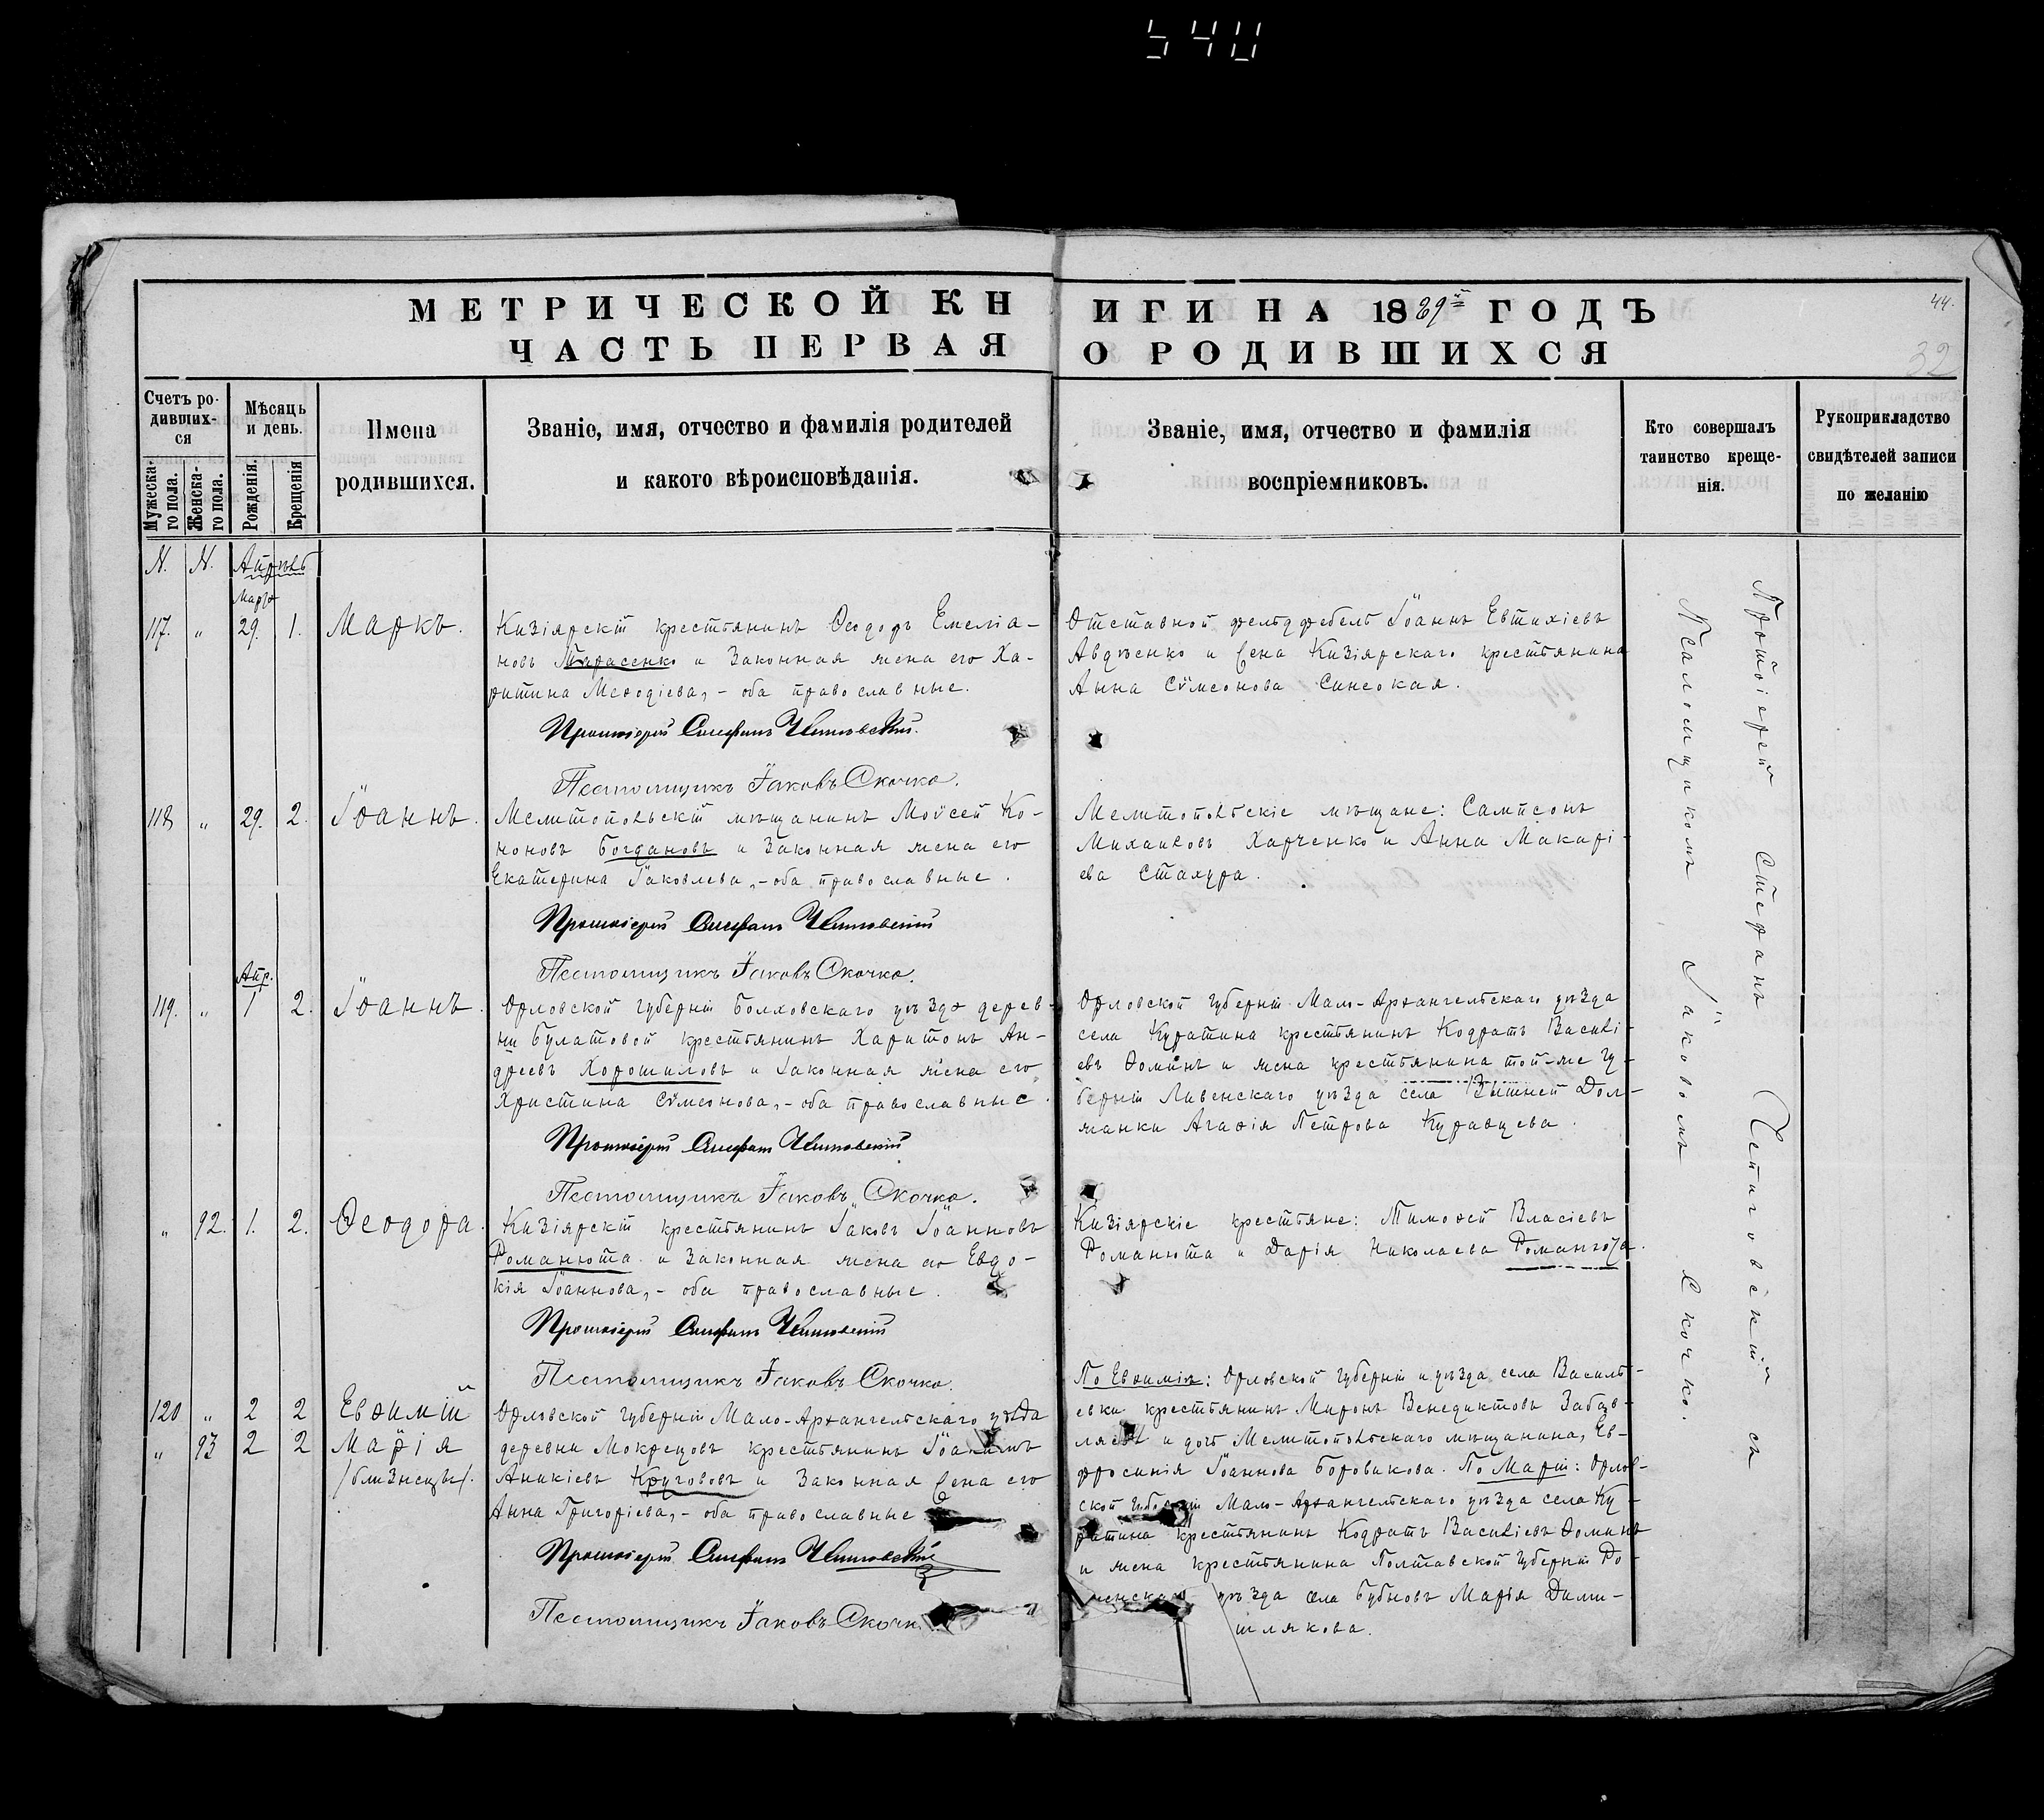 540
МЕТРИЧЕСКОЙ КН
ИГИ НА 1889й ГОДЪ
44.
ЧАСТЬ ПЕРВАЯ
О РОДИВШИХСЯ
32
Счетъ ро-
дивших-
ся
Мужеска-
го пола.
Женска-
го пола.
Мѣсяцъ
и день.
Рожденія.
Крещенія
Имена
родившихся.
Званіе, имя, отчество и фамилія родителей
и какого вѣроисповѣданія.
Званіе, имя, отчество и фамилія
воспріемниковъ.
Кто совершалъ
таинство креще-
нія.
Рукоприкладство
свидѣтелей записи
по желанію
N. N. Апрѣль
Марта
117. „ 29. 1. Маркъ.
Кизіярскій крестьянинъ Ѳеодоръ Емеліа-
новъ Тарасенко и законная жена его Ха-
ритина Меѳодіева, - оба православные.
Протоіерей Стефанъ
Псаломщикъ Іаковъ Скочко.
Отставной фельдфебель Іоаннъ Евтихіевъ
Авдѣенко и жена Кизіярскаго крестьянина
Анна Сѵмеонова Синеокая.
118 „ 29. 2. Іоаннъ.
Мелитопольскій мѣщанинъ Моѵсей Ко-
ноновъ Богдановъ и законная жена его
Екатерина Іаковлева, - оба православные.
Протоіерей Стефанъ
Псаломщикъ Іаковъ Скочко.
Мелитопольскіе мѣщане: Сампсонъ
Михаиловъ Харченко и Анна Макарі-
ева Стахура.
Апр.
119. „ 1 2. Іоаннъ.
Орловской губерніи Болховскаго уѣзда дерев-
ни Булатовой крестьянинъ Харитонъ Ан-
дреевъ Хорошиловъ и законная жена его
Христина Сѵмеонова, - оба православные.
Протоіерей Стефанъ
Псаломщикъ Іаковъ Скочко.
Орловской губерніи Мало-Архангельскаго уѣзда
села Куратина крестьянинъ Кодратъ Василі-
евъ Ѳоминъ и жена крестьянина той-же гу-
берніи Ливенскаго уѣзда села Вышней Дол-
жанки Агаѳія Петрова Куравцева.
„ 92. 1. 2. Ѳеодора.
Кизіярскій крестьянинъ Іаковъ Іоанновъ
Романюта и законная жена его Евдо-
кія Іоаннова, - оба православные.
Протоіерей Стефанъ
Псаломщикъ Іаковъ Скочко.
Кизіярскіе крестьяне: Тимоѳей Власіевъ
Романюта и Дарія Николаева Романюта.
120 „ 2 2 Евѳимій
„ 93 2 2 Марія
/близнецы/.
Орловской губерніи Мало-Архангельскаго уѣзда
деревни Мокрецовъ крестьянинъ Іоаннъ
Аникіевъ Круговъ и законная жена его
Анна Григоріева, - оба православные
Протоіерей Стефанъ
Псаломщикъ Іаковъ Скочк
По Евѳимію: Орловской губерніи и уѣзда села Василь-
евки крестьянинъ Миронъ Венедиктовъ
и дочь Мелитопольскаго мѣщанина, Ев-
фросинія Іоаннова Боровикова. По Маріи: Орлов-
ской губерніи Мало-Архангельскаго уѣзда села Ку-
ратина крестьянинъ Кодратъ Василіевъ Ѳоминъ
и жена крестьянина Полтавской губерніи Ро-
менскаго уѣзда села Бубновъ Марія Дими-
шлякова.
Протоіерей Стефанъ съ
Псаломщикомъ Іаковомъ Скочко.